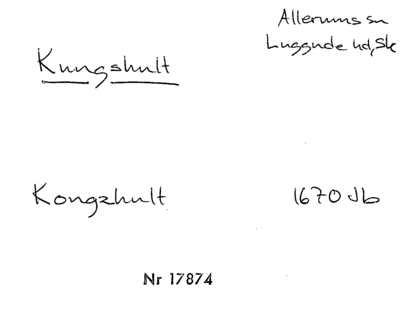 Allerums sn
Kungshult
Luggude hd, Sk
Kongzhult
1670 Jb
Nr 17874